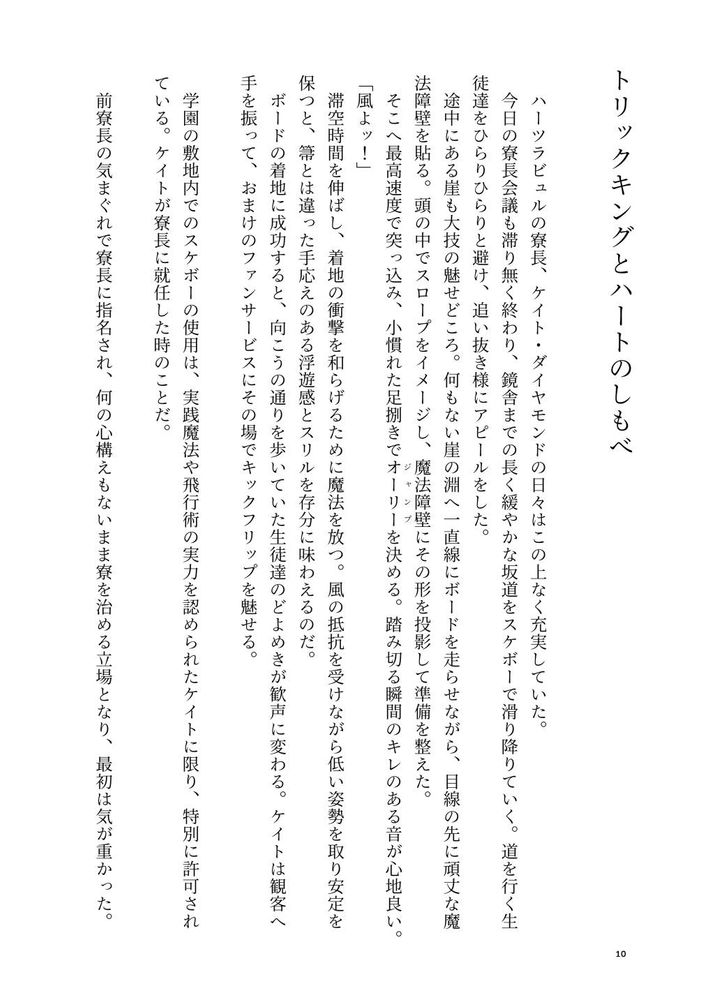 トリックキングとハートのしもべ
ハーツラビュルの寮長、ケイト・ダイヤモンドの日々はこの上なく充実していた。
今日の寮長会議も滞り無く終わり、鏡舎までの長く緩やかな坂道をスケボーで滑り降りていく。道を行く生
徒達をひらりひらりと避け、追い抜き様にアピールをした。
途中にある崖も大技の魅せどころ。何もない崖の淵へ一直線にボードを走らせながら、目線の先に頑丈な魔
法障壁を貼る。頭の中でスロープをイメージし、魔法障壁にその形を投影して準備を整えた。
そこへ最高速度で突っ込み、小慣れた足捌きでオーリーを決める。踏み切る瞬間のキレのある音が心地良い。
ジャンプ
「風よッ！」
滞空時間を伸ばし、着地の衝撃を和らげるために魔法を放つ。風の抵抗を受けながら低い姿勢を取り安定を
保つと、箒とは違った手応えのある浮遊感とスリルを存分に味わえるのだ。
ボードの着地に成功すると、向こうの通りを歩いていた生徒達のどよめきが歓声に変わる。ケイトは観客へ
手を振って、おまけのファンサービスにその場でキックフリップを魅せる。
学園の敷地内でのスケボーの使用は、実践魔法や飛行術の実力を認められたケイトに限り、特別に許可され
ている。ケイトが寮長に就任した時のことだ。
前寮長の気まぐれで寮長に指名され、何の心構えもないまま寮を治める立場となり、最初は気が重かった。
10